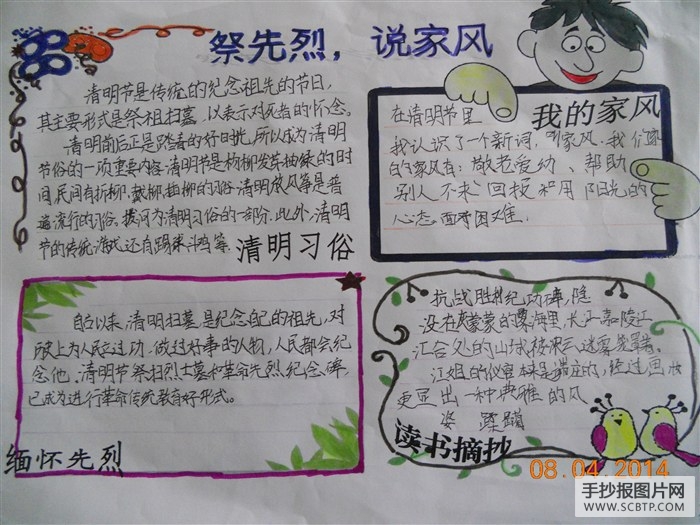 祭先烈，说家风
清明节是传统的纪念祖先的节日，
其主要形式是祭祖扫墓，以表示对死者的怀念。
清明前后正是踏春的好时光，所以成为清明
节俗的一项重要内容。清明节是杨柳发芽抽绿的时
间，民间有折柳、戴柳、插柳的习俗。清明放风筝是普
遍流行的习俗。拔河为清明习俗的一部分。此外，清明
节的传统 还有踢 斗鸡等。
清明习俗
我的家风
在清明节里
我认识了一个新词，叫家风。我们家
的家风有：敬老爱幼、帮助
别人不求回报和用阳光的
心态面对困难。
自古以来，清明扫墓是纪念自己的祖先，对
历史上为人民立过功、做过好事的人物，人民都会纪
念他。清明节祭扫烈士墓和革命先烈纪念碑，
已成为进行革命传统教育好形式。
缅怀先烈
抗战胜利纪功碑，隐
没在 蒙蒙的雾海里，长江嘉陵江
汇合处的山城，
江姐的
更显出一种典雅的风
姿
读书摘抄
08.04.2014
手抄报图片网
WWW.SCBTP.COM